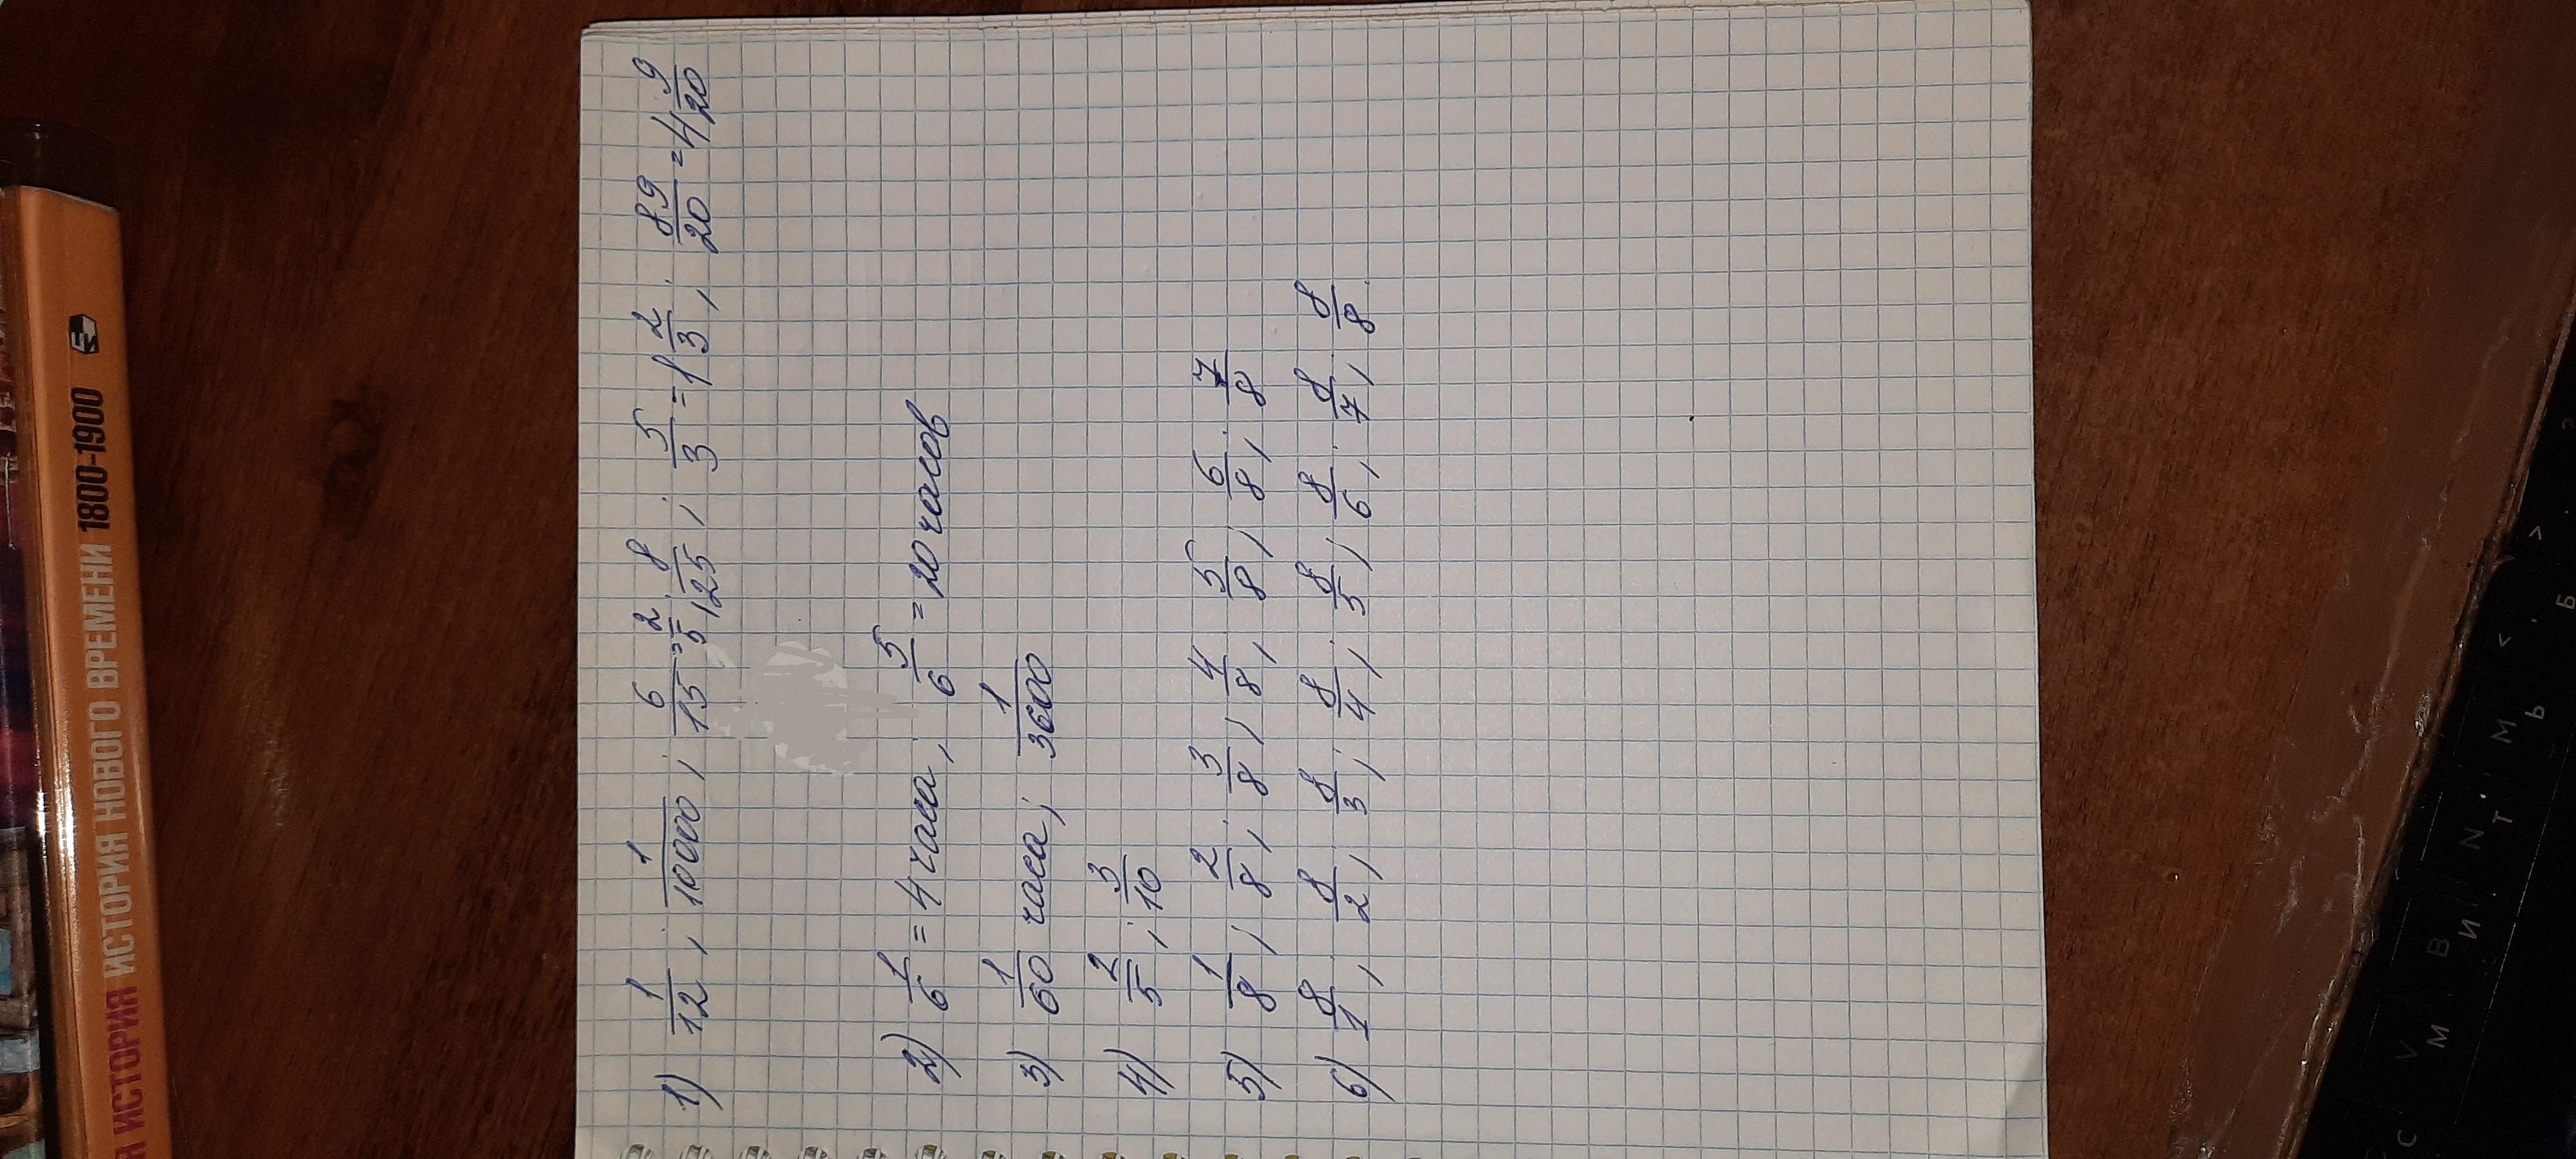 1) 1/12; 1/10000; 6/15=2/5; 8/125; 5/3=1 2/3; 89/20=4 9/20
2) 1/6=4 часа; 5/6=20 часов
3) 1/60 часа; 1/3600
4) 2/5; 3/10
5) 1/8; 2/8; 3/8; 4/8; 5/8; 6/8; 7/8
6) 8/1; 8/2; 8/3; 8/4; 8/5; 8/6; 8/7; 8/8
ИСТОРИЯ ИСТОРИЯ НОВОГО ВРЕМЕНИ 1800-1900
C V B N M < >
М И Т Ь Б